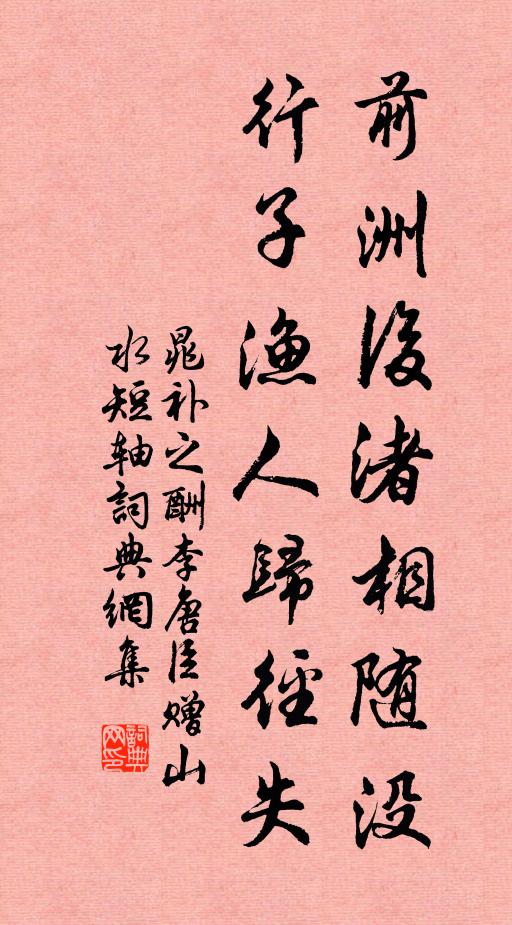 前洲後渚相随没
行子漁人歸徑失
晁补之酬李唐臣赠山
水短轴詞典網集
詞典網印